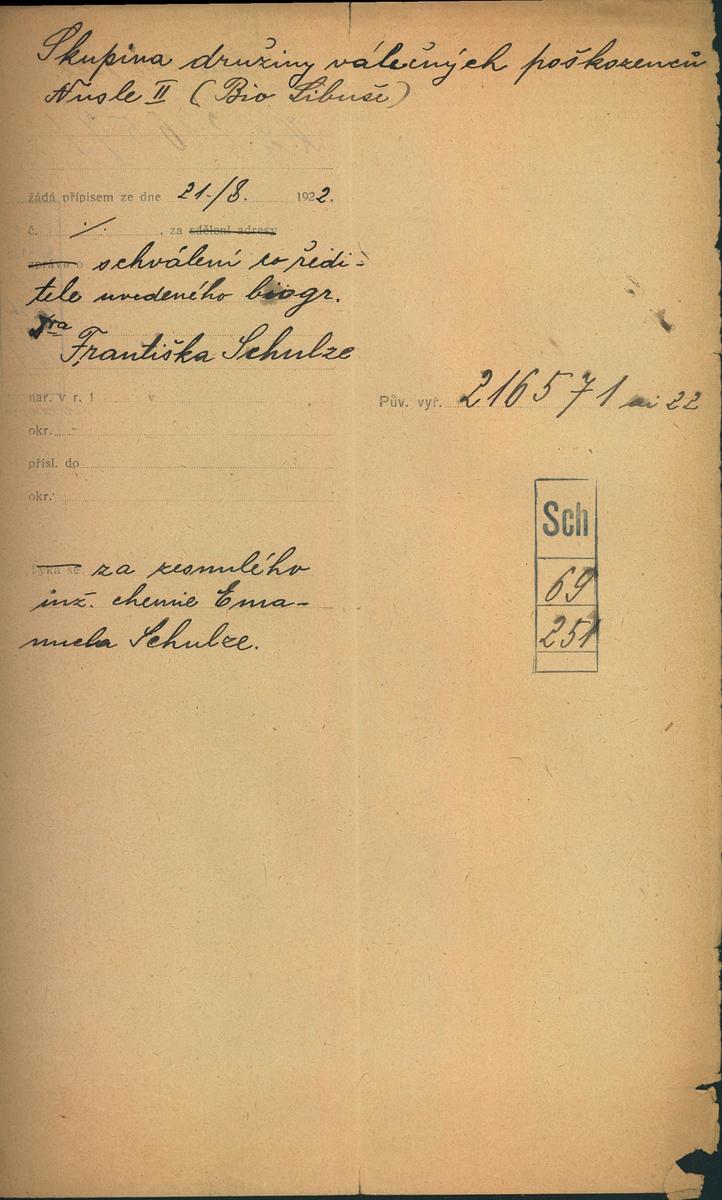 Skupina družiny válečných poškozenců
Nusle II (Bio Libuše)
žádá přípisem ze dne 21./8. 1922.
č. ./. , za sdělení adresy
zprávu o schválení co ředi-
tele uvedeného biogr.
Dra
Františka Schulze
nar. v r. 1 v
Pův. vyř. 216571 ai 22
okr.
přísl. do
okr.
Sch
69
251
týká se za zesnulého
inž. chemie Ema-
nuela Schulze.